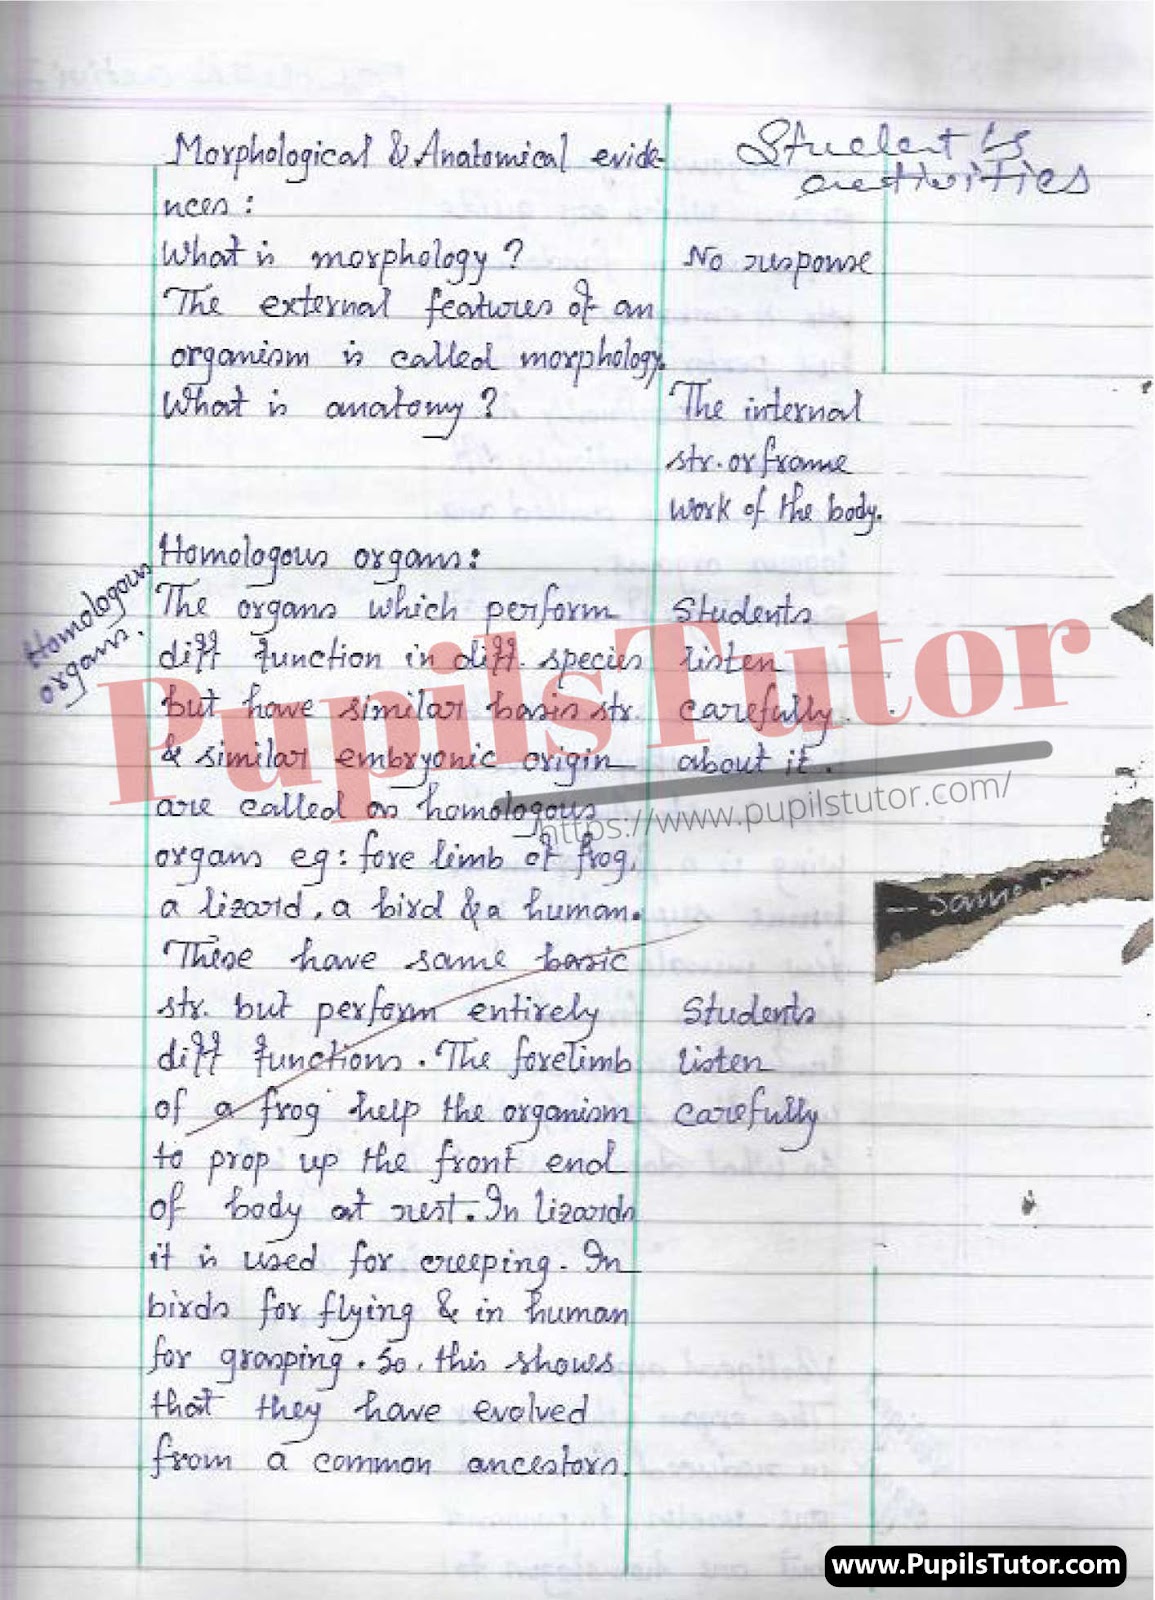 Morphological & Anatomical evide-
nces:
What is morphology?
The external features of an
organism is called morphology.
What is anatomy?
Homologous organs:
The organs which perform
diff function in diff. species
but have similar basis str.
& similar embryonic origin
are called as homologous
organs eg: fore limb of frog,
a lizard, a bird & a human.
These have same basic
str. but perform entirely
diff functions. The forelimb
of a frog help the organism
to prop up the front end
of body at rest. In lizards
it is used for creeping. In
birds for flying & in human
for grasping. So, this shows
that they have evolved
from a common ancestors.
Homologous
organs.
Student's
activities
No response
The internal
str. or frame
work of the body.
Students
listen
carefully
about it.
Students
listen
carefully
— Same
Pupils Tutor
https://www.pupilstutor.com/
www.PupilsTutor.com